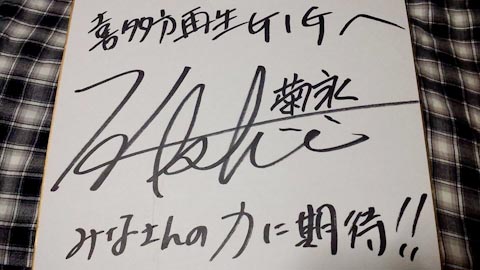 喜多方再生GIGへ
菊永
みなさんの力に期待!!